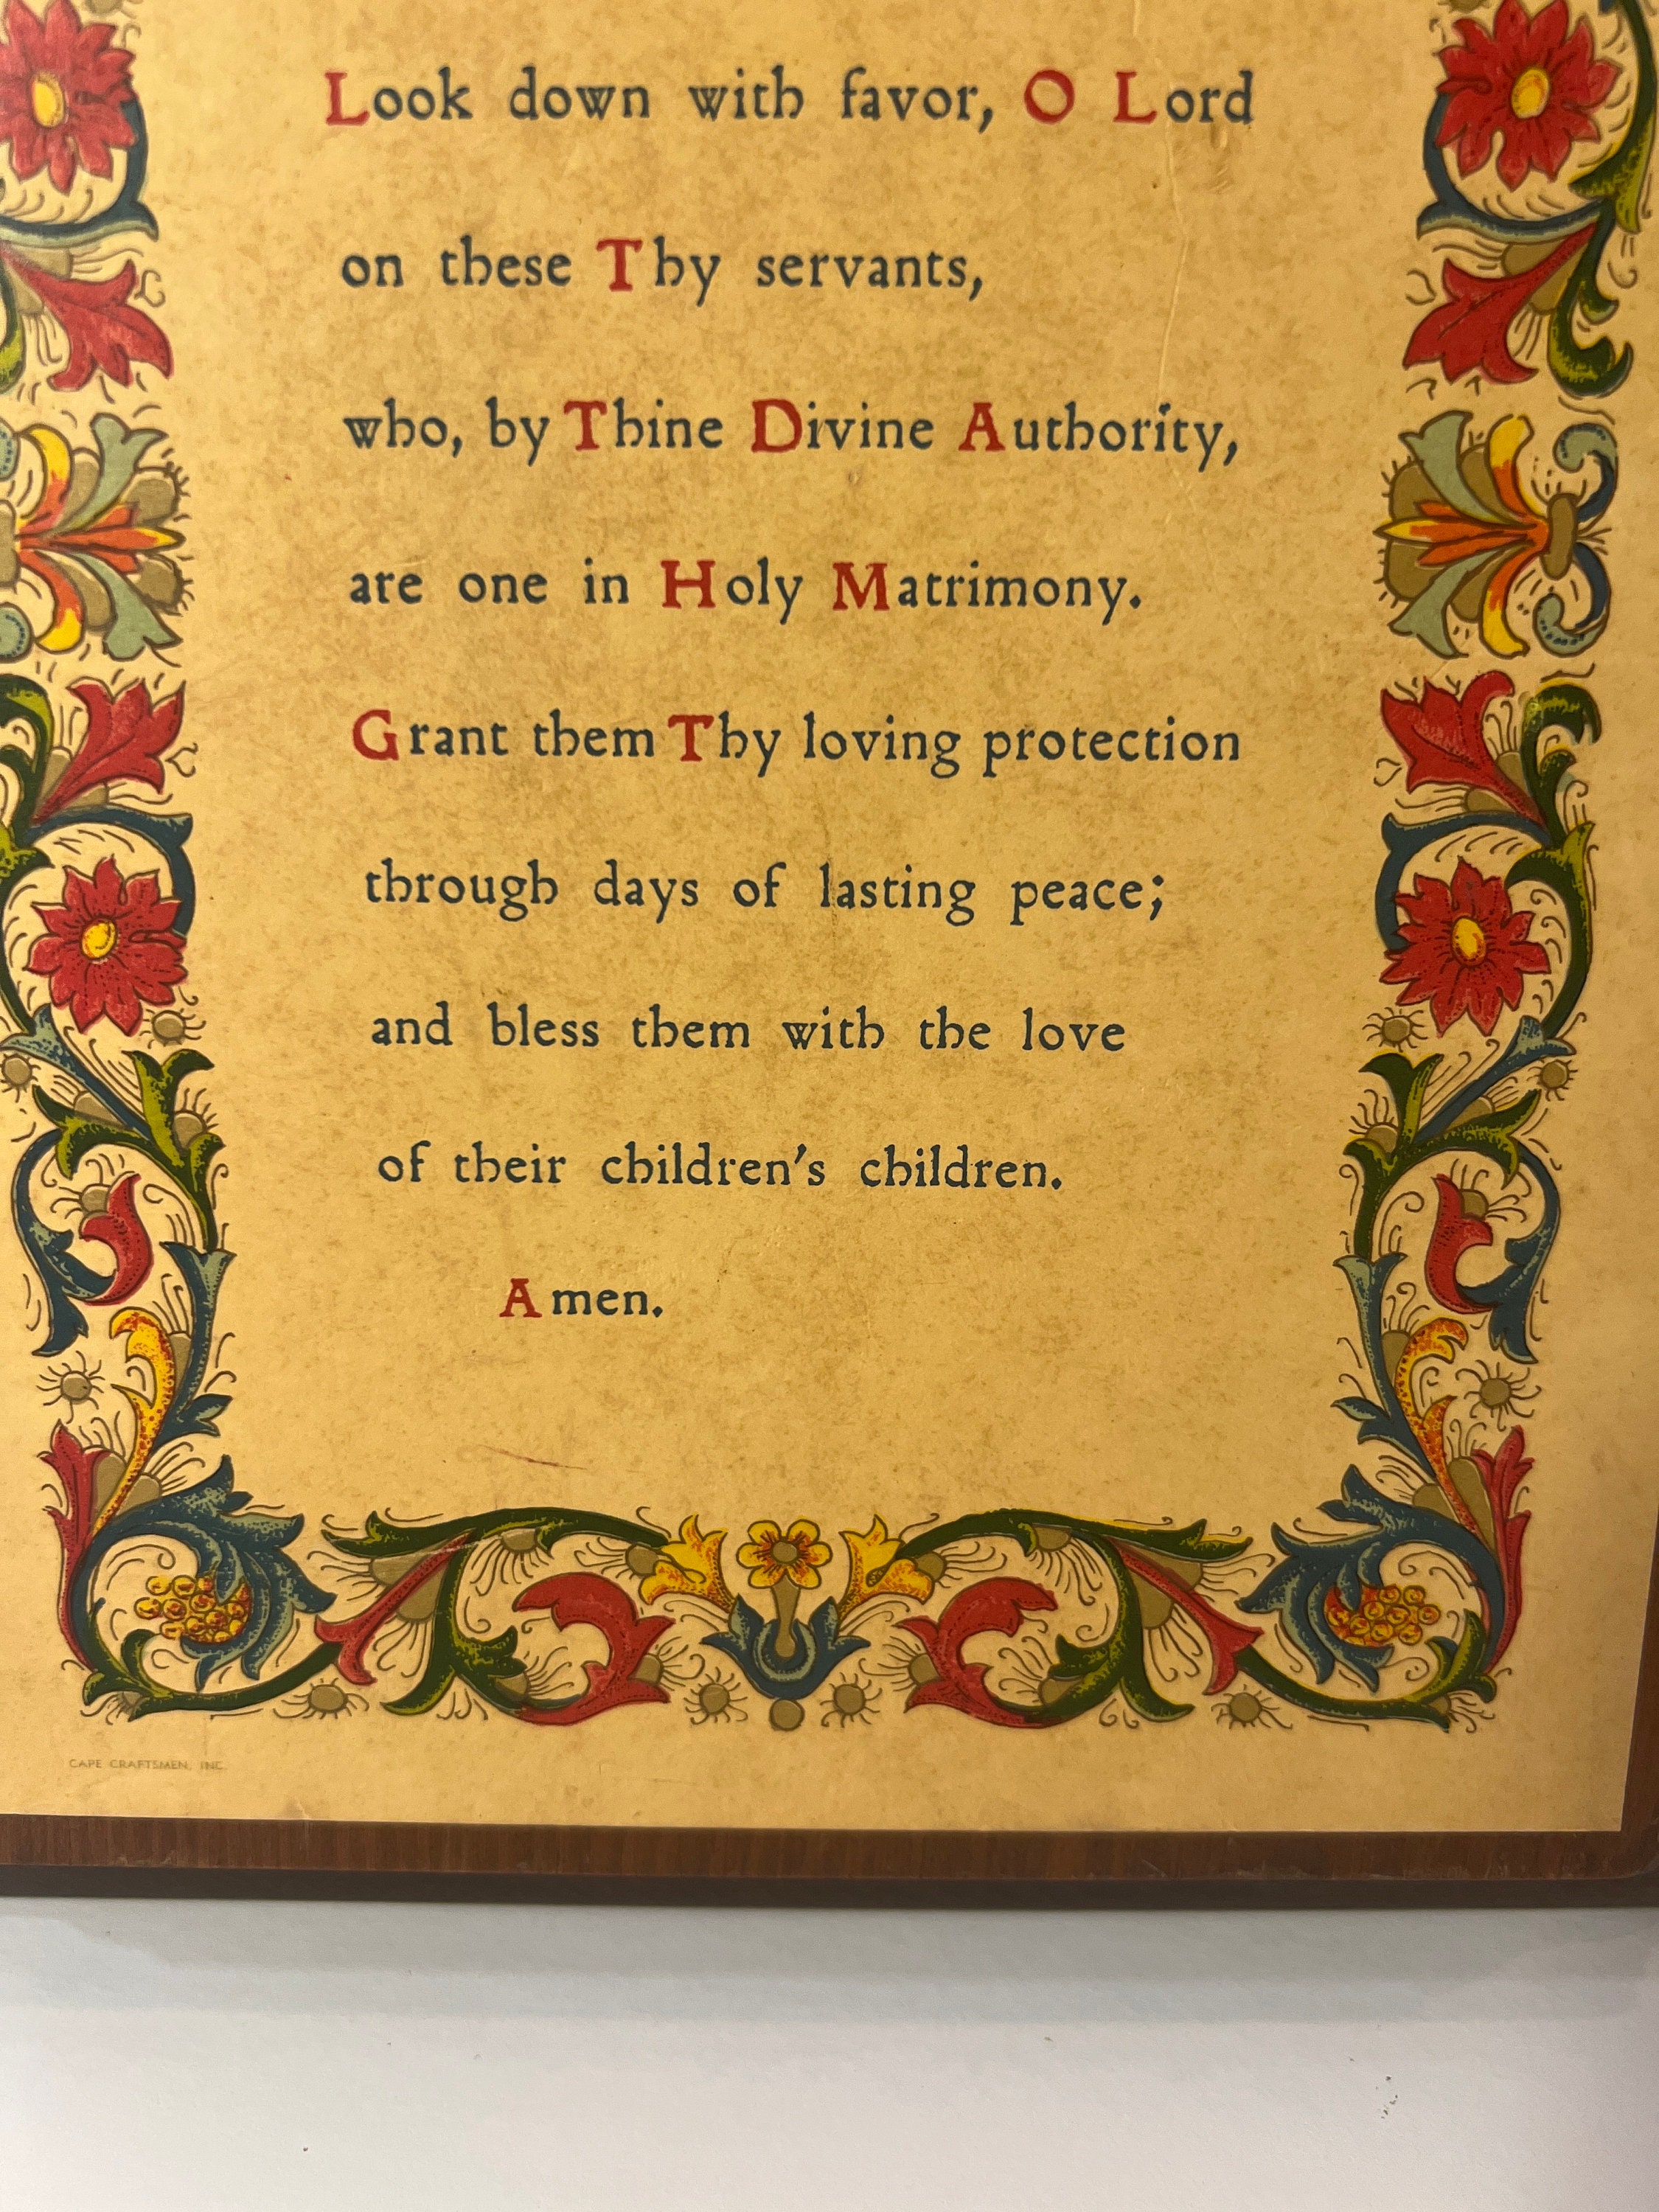 Look down with favor, O Lord
on these Thy servants,
who, by Thine Divine Authority,
are one in Holy Matrimony.
Grant them Thy loving protection
through days of lasting peace;
and bless them with the love
of their children's children.
Amen.
CAPE CRAFTSMEN, INC.